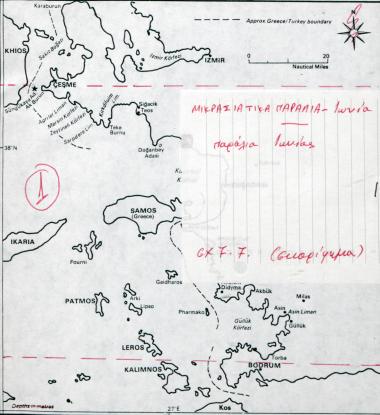 Karaburun
Approx Greece/Turkey boundary
N
KHIOS
Sakız Boğazı
İzmir Körfezi
İZMIR
0 20
Nautical Miles
ÇEŞME
ΜΙΚΡΑΣΙΑΤΙΚΑ ΠΑΡΑΛΙΑ - Ιωνία
Sığacık
Teos
Teke
Burnu
παράλια Ιωνίας
38°N
Doğanbey
Adası
1
SAMOS
(Greece)
IKARIA
Fourni
σχ 7.7. (σκαρίφημα)
Gaidharos
Didyma
Akbük
Milas
PATMOS
Arki
Lipso
Pharmako
Asin
Asin Limanı
Güllük
Körfezi
Güllük
LEROS
Torba
KALIMNOS
BODRUM
Depths in metres
27°E
Kos